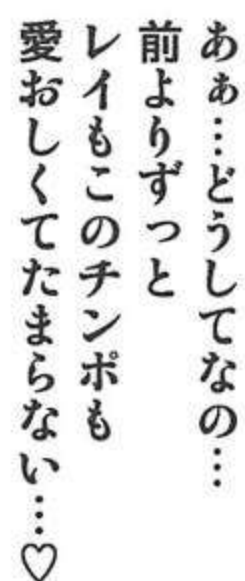 あぁ…どうしてなの…
前よりずっと
レイもこのチンポも
愛おしくてたまらない…♡